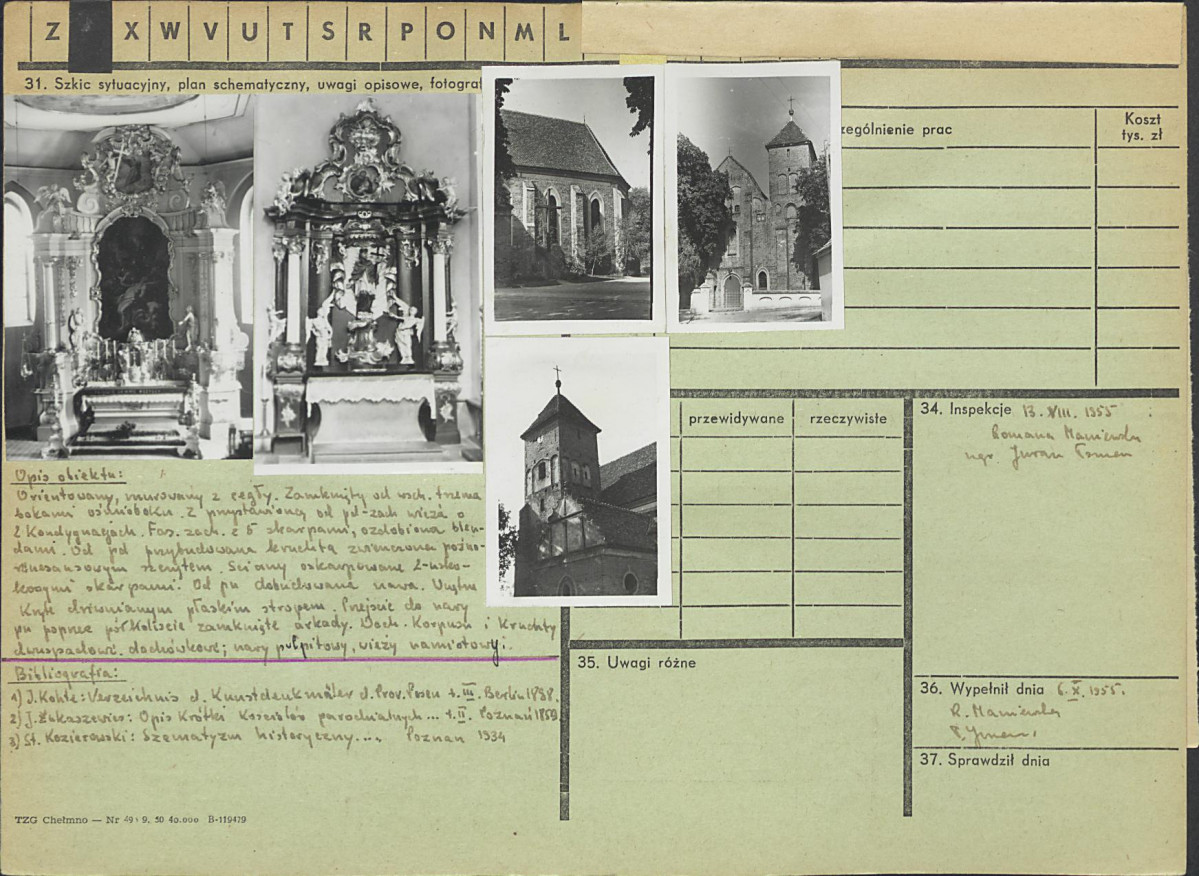 Z X W V U T S R P O N M L
31. Szkic sytuacyjny, plan schematyczny, uwagi opisowe, fotograf
zególnienie prac
Koszt
tys. zł
przewidywane
rzeczywiste
34. Inspekcje 13. VIII. 1955
Romana
mgr.
Opis obiektu:
Orientowany, murowany z cegły. Zamknięty od wsch. trzema
bokami ośmioboku. Z przystawioną od pd-zach wieżą o
2 kondygnacjach. Fas. zach. z 5 skarpami, ozdobiona blen-
dami. Od pd przybudowana kruchta zwieńczona późno-
renesansowym szczytem. Ściany oskarpowane 2-usko-
kowymi skarpami. Od pn dobudowana nawa. Wnętrze
Kryte drewnianym płaskim stropem. Przejście do nawy
pn poprzez półkoliście zamknięte arkady. Dach. Korpusu i Kruchty
dwuspadowe. dachówkowe; nawy pulpitowy, wieży namiotowy.
Bibliografia:
1) J. Kohte: Verzeichnis d. Kunstdenkmäler d. Prov. Posen t. III. Berlin 1898.
2) J. Łukaszewicz: Opis Krótki Kościołów parochialnych... t. II. Poznań 1859
3) St. Kozierowski: Szematyzm historyczny.... Poznań 1934
35. Uwagi różne
36. Wypełnił dnia 6. X. 1955.
R.
37. Sprawdził dnia
TZG Chełmno — Nr 49 9. 50 40.000 B-119479